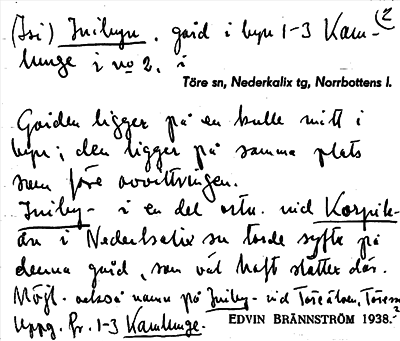 2
(Isi) Inibyn. gård i byn 1-3 Kam-
lunge i no 2. i
Töre sn, Nederkalix tg, Norrbottens l.
Gården ligger på en kulle mitt i
byn; den ligger på samma plats
som före avvittringen.
Iniby- i en del ortn. vid Korpik-
ån i Nederkalix sn torde syfta på
denna gård, som väl haft slåtter där.
Möjl. också namn på Iniby- vid Töreälven, Töresn
Uppg. fr. 1-3 Kamlunge. EDVIN BRÄNNSTRÖM 1938.